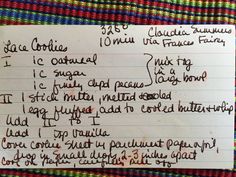 325° Claudia Summers
10 min via Frances Fairey
Lace Cookies
I 1c oatmeal
1c sugar
1c finely chpd pecans
mix tog
in a
lg bowl
II 1 stick butter, melted & cooled
1 egg, fluffed, add to cooled butter & whip
Add II to I
Add 1 tsp vanilla
Cover cookie sheet in parchment paper &
drop in small drops, 2-3 inches apart
Cool on